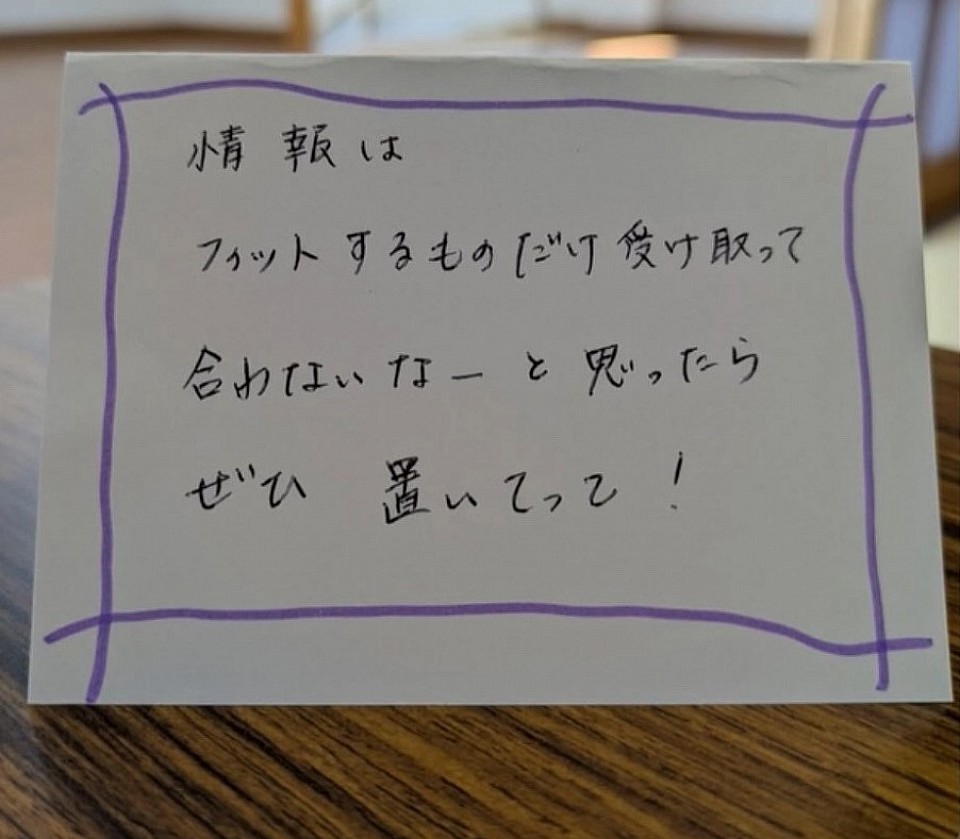 情報は
フィットするものだけ受け取って
合わないなーと思ったら
ぜひ 置いてって！